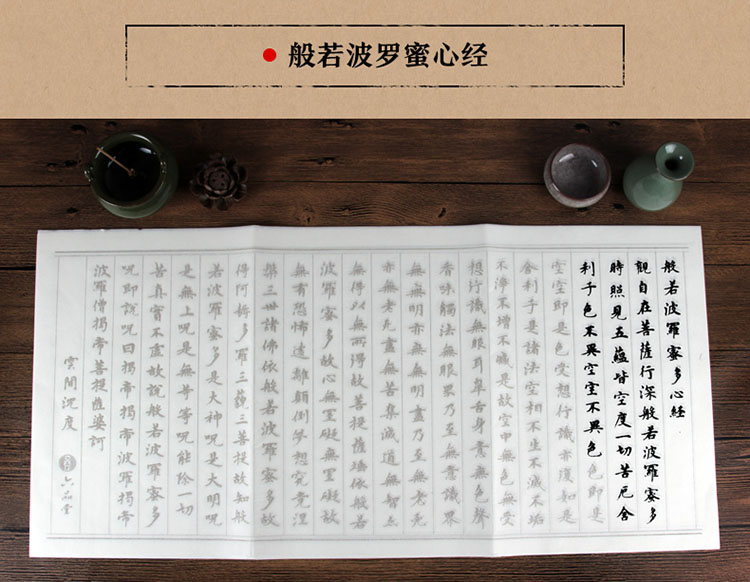 般若波罗蜜心经
般若波羅蜜多心經
觀自在菩薩行深般若波羅蜜多
時照見五蘊皆空度一切苦厄舍
利子色不異空空不異色色即是
空空即是色受想行識亦復如是
舍利子是諸法空相不生不滅不垢
不淨不增不減是故空中無色無受
想行識無眼耳鼻舌身意無色聲
香味觸法無眼界乃至無意識界
無無明亦無無明盡乃至無老死
亦無老死盡無苦集滅道無智亦
無得以無所得故菩提薩埵依般若
波羅蜜多故心無罣礙無罣礙故
無有恐怖遠離顛倒夢想究竟涅
槃三世諸佛依般若波羅蜜多故
得阿耨多羅三藐三菩提故知般
若波羅蜜多是大神呪是大明呪
是無上呪是無等等呪能除一切
苦真實不虛故說般若波羅蜜多
呪即說呪曰揭帝揭帝波羅揭帝
波羅僧揭帝菩提薩婆訶
雲間沉度
六品堂